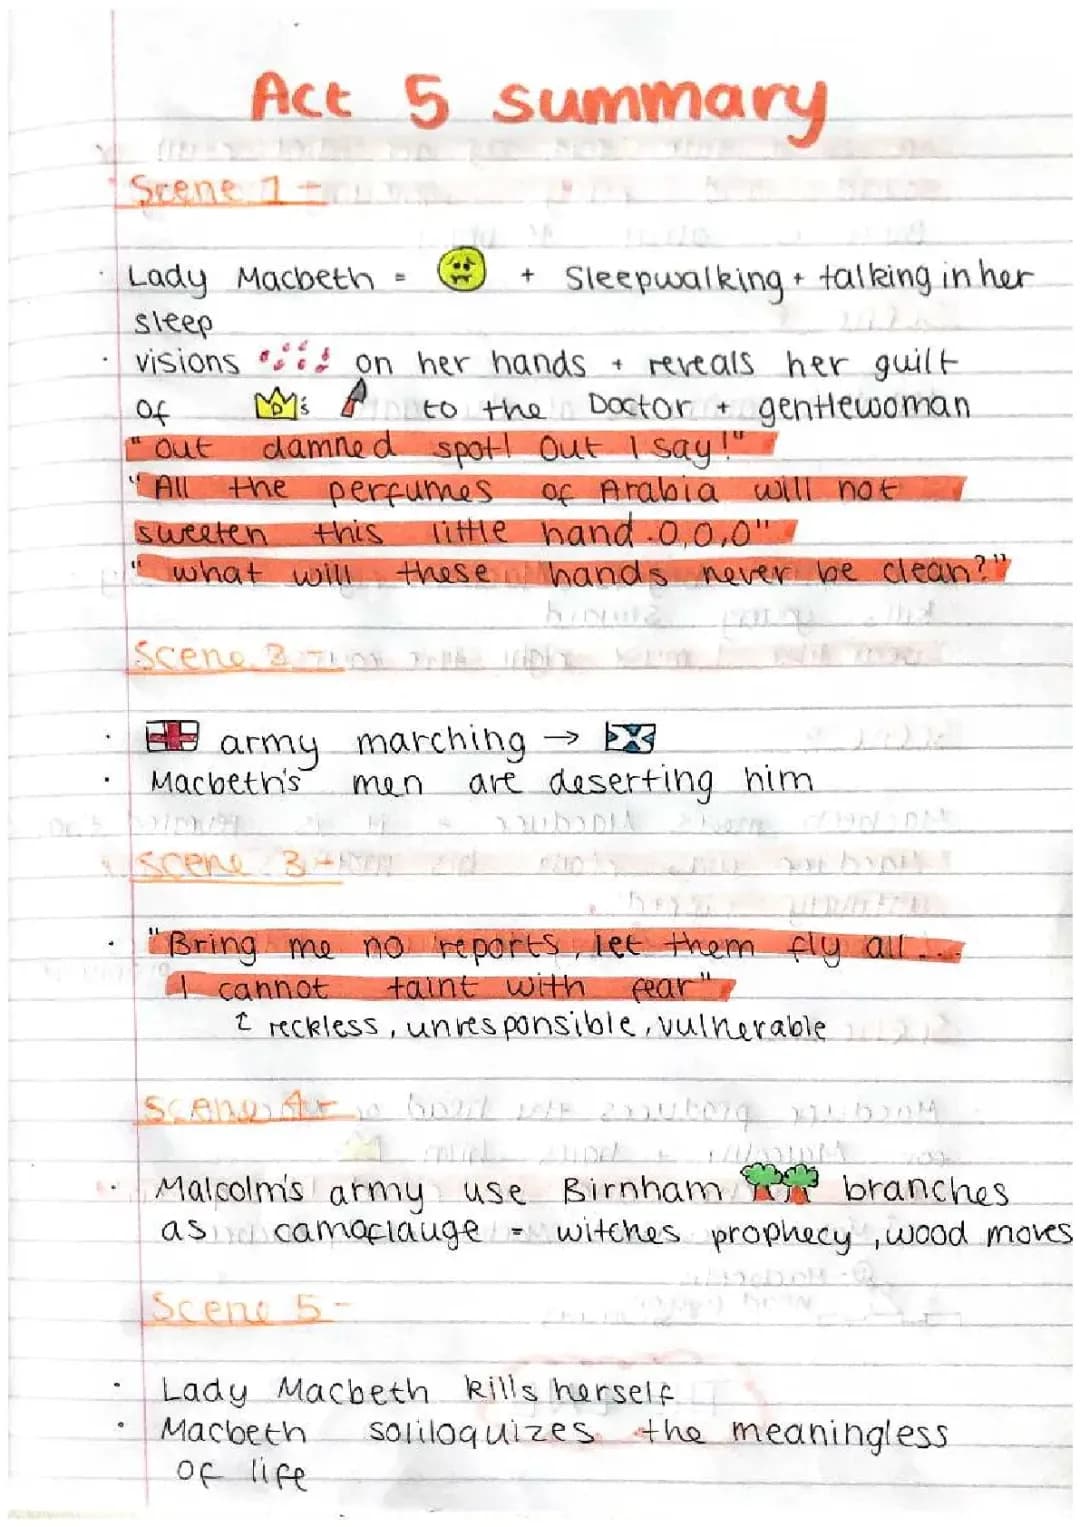 Act 5 summary
Scene 1 -
· Lady Macbeth = + Sleepwalking + talking in her
sleep
· visions on her hands + reveals her guilt
of D's to the Doctor + gentlewoman
"out damned spot! Out I say!"
"All the perfumes of Arabia will not
sweeten this little hand. O,O,O"
"what will these hands never be clean?"
Scene 2 -
· army marching →
· Macbeth's men are deserting him
Scene 3 -
· "Bring me no reports, let them fly all...
I cannot taint with fear"
↑ reckless, unresponsible, vulnerable
Scene 4 -
· Malcolm's army use Birnham branches
as camoflauge = witches prophecy, wood moves
Scene 5 -
· Lady Macbeth kills herself
· Macbeth soliloquizes the meaningless
of life